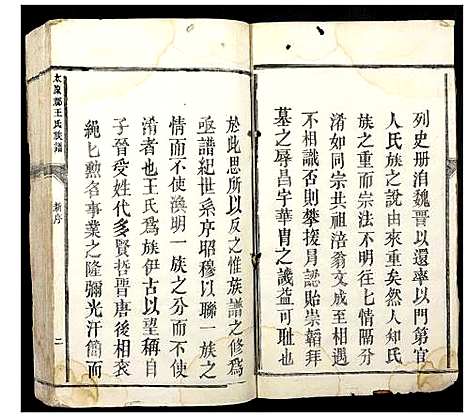 列史册洎魏晋以還率以門第官
人氏族之說由來重矣然人知氏
族之重而宗法不明往七情隔分
淆如同宗共祖涪翁文成相遇
不相識否則攀援冒認貽崇韜拜
墓之辱昌宇華胄之譏益可耻也
於此思所以反之惟族譜之修爲
亟譜紀世系序昭穆以聯一族之
情而不使渙明一族之分而不使
淆者也王氏爲族伊古以望稱自
子晉受姓代多賢哲晋唐後相衮
繩匕勲名事業之隆彌光汗簡而
太原郡王氏族譜
新序
二